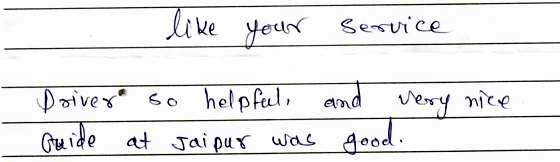 like your service
Driver so helpful, and very nice
Guide at Jaipur was good.